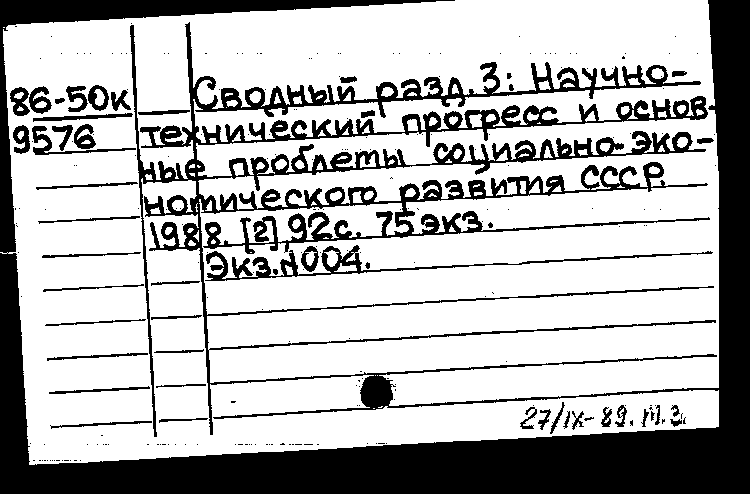 86-50к Сводный разд. 3: Научно-
9576 технический прогресс и основ-
ные проблемы социально-эко-
номического развития СССР.
1988. [2], 92с. 75 экз.
Экз.№004.
27/IX-89. М.З.